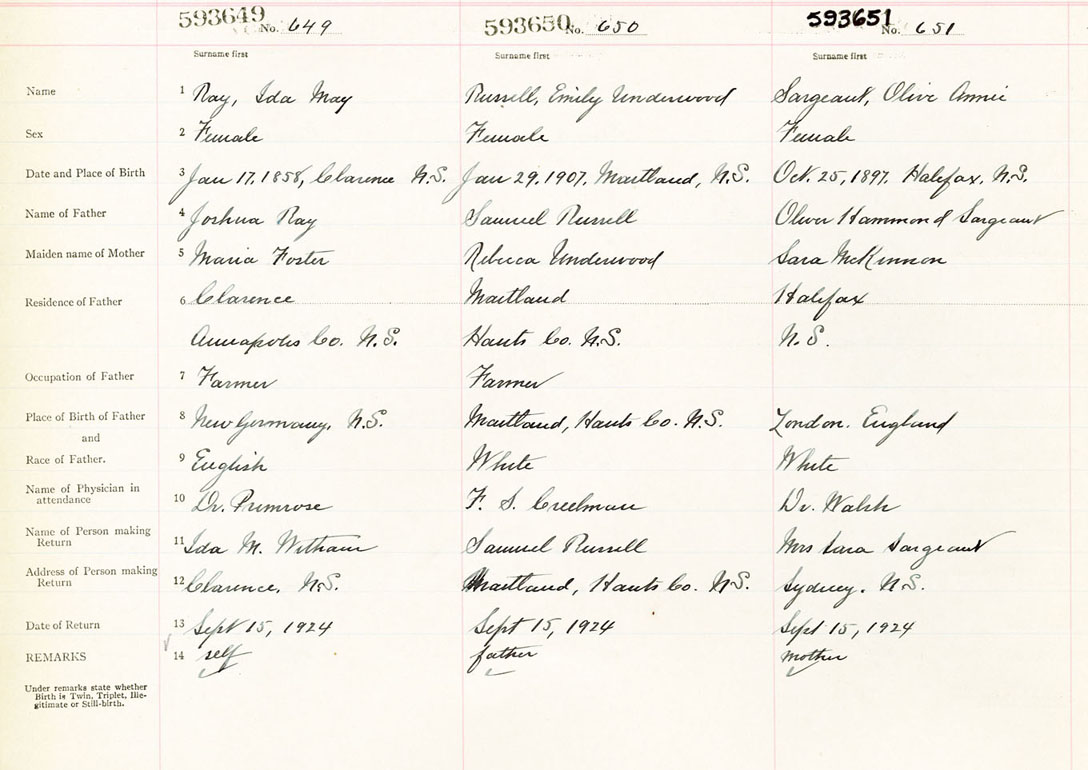 593649 No. 649 593650 No. 650 593651 No. 651
Surname first Surname first Surname first
Name 1 Ray, Ida May Russell, Emily Underwood Sargeant, Olive Annie
Sex 2 Female Female Female
Date and Place of Birth 3 Jan 17, 1858, Clarence N.S. Jan 29, 1907, Maitland, N.S. Oct. 25, 1897, Halifax, N.S.
Name of Father 4 Joshua Ray Samuel Russell Oliver Hammond Sargeant
Maiden name of Mother 5 Maria Foster Rebecca Underwood Sara McKinnon
Residence of Father 6 Clarence Maitland Halifax
Annapolis Co. N.S. Hants Co. N.S. N.S.
Occupation of Father 7 Farmer Farmer
Place of Birth of Father 8 New Germany, N.S. Maitland, Hants Co. N.S. London. England
and
Race of Father. 9 English White White
Name of Physician in
attendance 10 Dr. Primrose F. S. Creelman Dr. Walsh
Name of Person making
Return 11 Ida M. Witham Samuel Russell Mrs Sara Sargeant
Address of Person making
Return 12 Clarence, N.S. Maitland, Hants Co. N.S. Sydney, N.S.
Date of Return 13 Sept 15, 1924 Sept 15, 1924 Sept 15, 1924
REMARKS 14 self father mother
Under remarks state whether
Birth is Twin, Triplet, Ille-
gitimate or Still-birth.